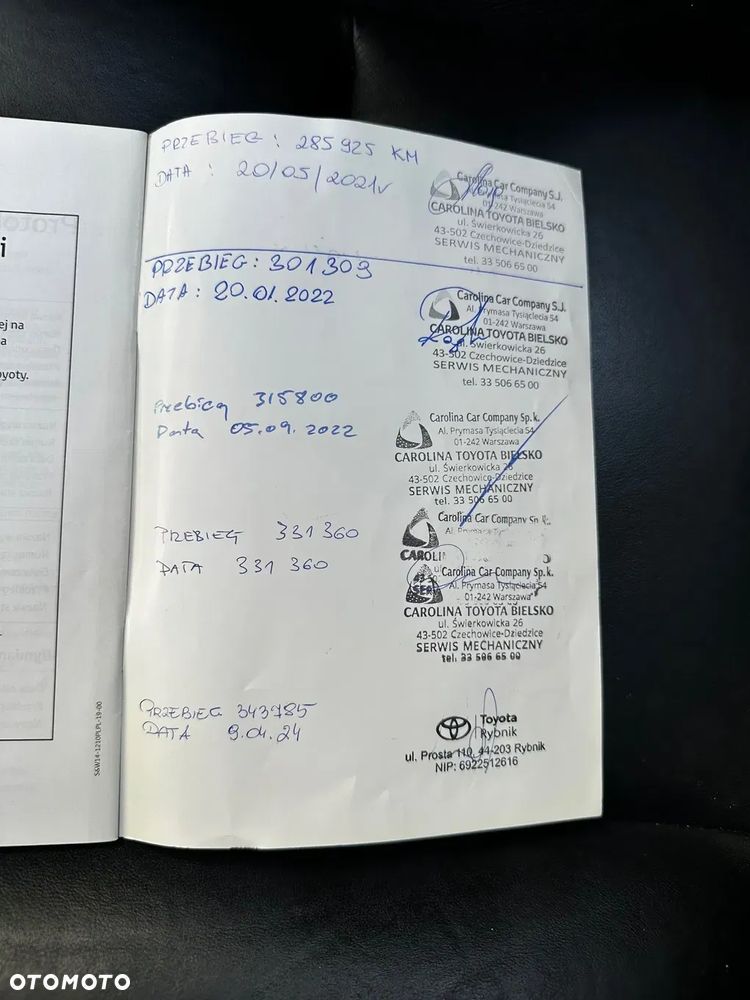 i
ej na
a
oyoty.
S&W14-1210PLPL-19-00
PRZEBIEG : 285 925 KM
DATA : 20/05/2021r
Carolina Car Company S.J.
Al. Prymasa Tysiąclecia 54
01-242 Warszawa
CAROLINA TOYOTA BIELSKO
ul. Świerkowicka 26
43-502 Czechowice-Dziedzice
SERWIS MECHANICZNY
tel. 33 506 65 00
PRZEBIEG : 301 309
DATA : 20.01.2022
Carolina Car Company S.J.
Al. Prymasa Tysiąclecia 54
01-242 Warszawa
CAROLINA TOYOTA BIELSKO
ul. Świerkowicka 26
43-502 Czechowice-Dziedzice
SERWIS MECHANICZNY
tel. 33 506 65 00
Przebieg 315800
Data 05.09.2022
Carolina Car Company Sp.k.
Al. Prymasa Tysiąclecia 54
01-242 Warszawa
CAROLINA TOYOTA BIELSKO
ul. Świerkowicka 26
43-502 Czechowice-Dziedzice
SERWIS MECHANICZNY
tel. 33 506 65 00
PRZEBIEG 331 360
DATA 331 360
Carolina Car Company Sp.k.
CAROLIN
Carolina Car Company Sp.k.
Al. Prymasa Tysiąclecia 54
01-242 Warszawa
CAROLINA TOYOTA BIELSKO
ul. Świerkowicka 26
43-502 Czechowice-Dziedzice
SERWIS MECHANICZNY
tel. 33 506 65 00
PRZEBIEG 343785
DATA 9.04.24
Toyota
Rybnik
ul. Prosta 110, 44-203 Rybnik
NIP: 6922512616
OTOMOTO